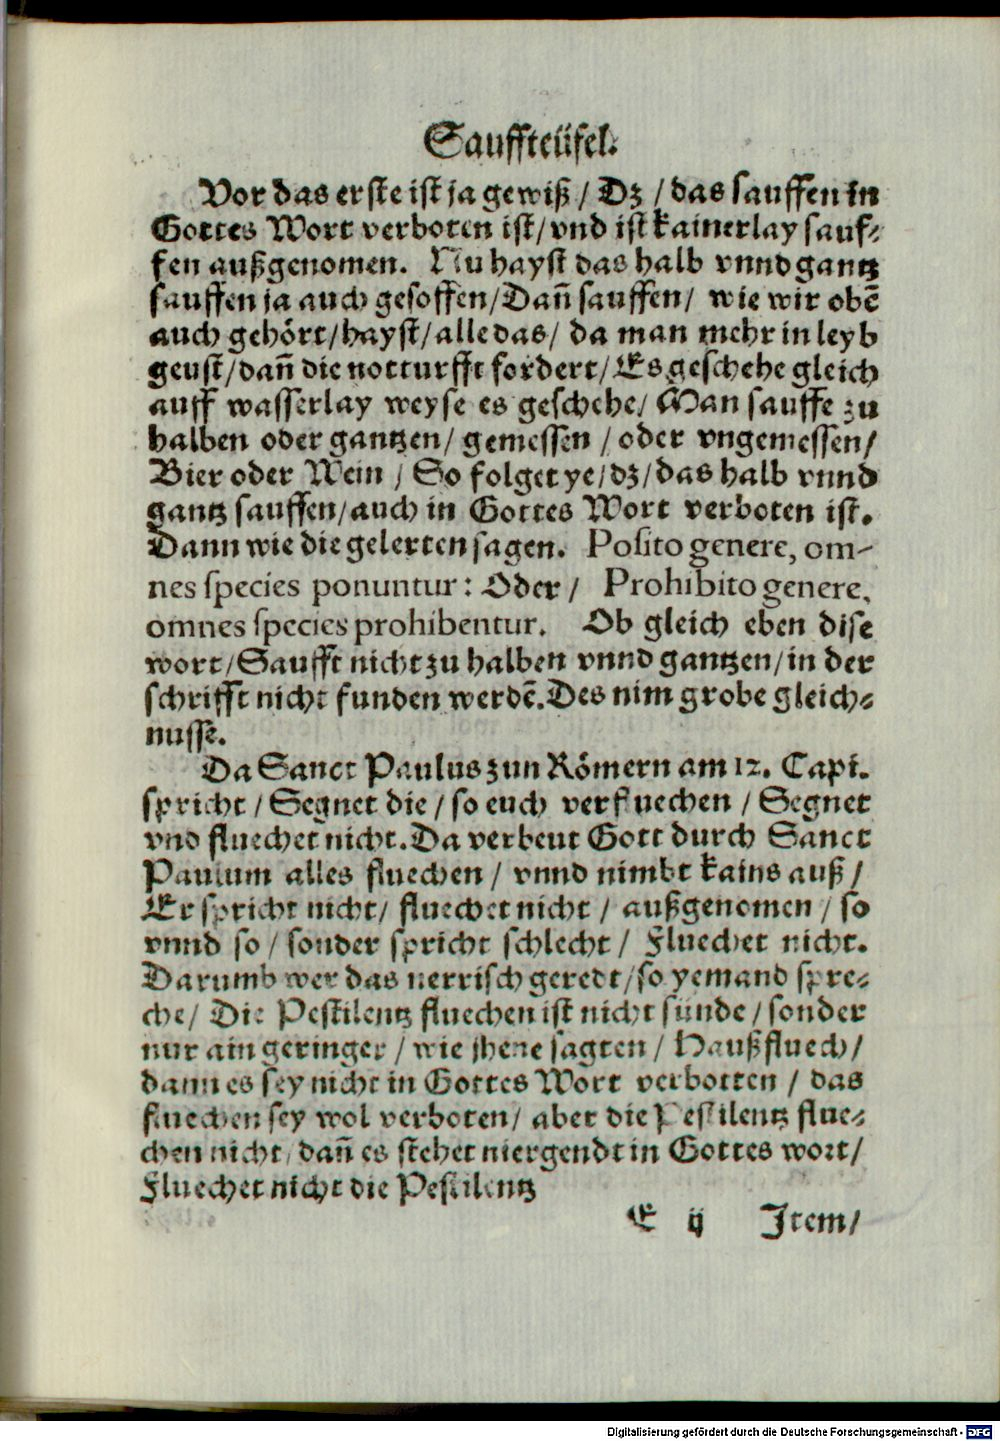 Sauffteüfel.
Vor das erste ist ja gewiß / Dz / das sauffen in
Gottes Wort verboten ist / vnd ist kainerlay sauf-
fen außgenomen. Nu hayst das halb vnnd gantz
sauffen ja auch gesoffen / Dañ sauffen / wie wir obē
auch gehört / hayst / alle das / da man mehr in leyb
geust / dañ die notturfft fordert / Es geschehe gleich
auff wasserlay weyse es geschehe / Man sauffe zu
halben oder gantzen / gemessen / oder vngemessen /
Bier oder Wein / So folget ye / dz / das halb vnnd
gantz sauffen / auch in Gottes Wort verboten ist.
Dann wie die gelerten sagen. Posito genere, om-
nes species ponuntur: Oder / Prohibito genere,
omnes species prohibentur. Ob gleich eben dise
wort / Saufft nicht zu halben vnnd gantzen / in der
schrifft nicht funden werdē. Des nim grobe gleich-
nusse.
Da Sanct Paulus zun Römern am 12. Capi.
spricht / Segnet die / so euch verfluechen / Segnet
vnd fluechet nicht. Da verbeut Gott durch Sanct
Paulum alles fluechen / vnnd nimbt kains auß /
Er spricht nicht / fluechet nicht / außgenomen / so
vnnd so / sonder spricht schlecht / Fluechet nicht.
Darumb wer das nerrisch geredt / so yemand spre-
che / Die Pestilentz fluechen ist nicht sünde / sonder
nur ain geringer / wie jhene sagten / Haußfluech /
dann es sey nicht in Gottes Wort verbotten / das
fluechen sey wol verboten / aber die Pestilentz flue-
chen nicht / dañ es stehet niergendt in Gottes wort /
Fluechet nicht die Pestilentz
E ij Item /
Digitalisierung gefördert durch die Deutsche Forschungsgemeinschaft - DFG